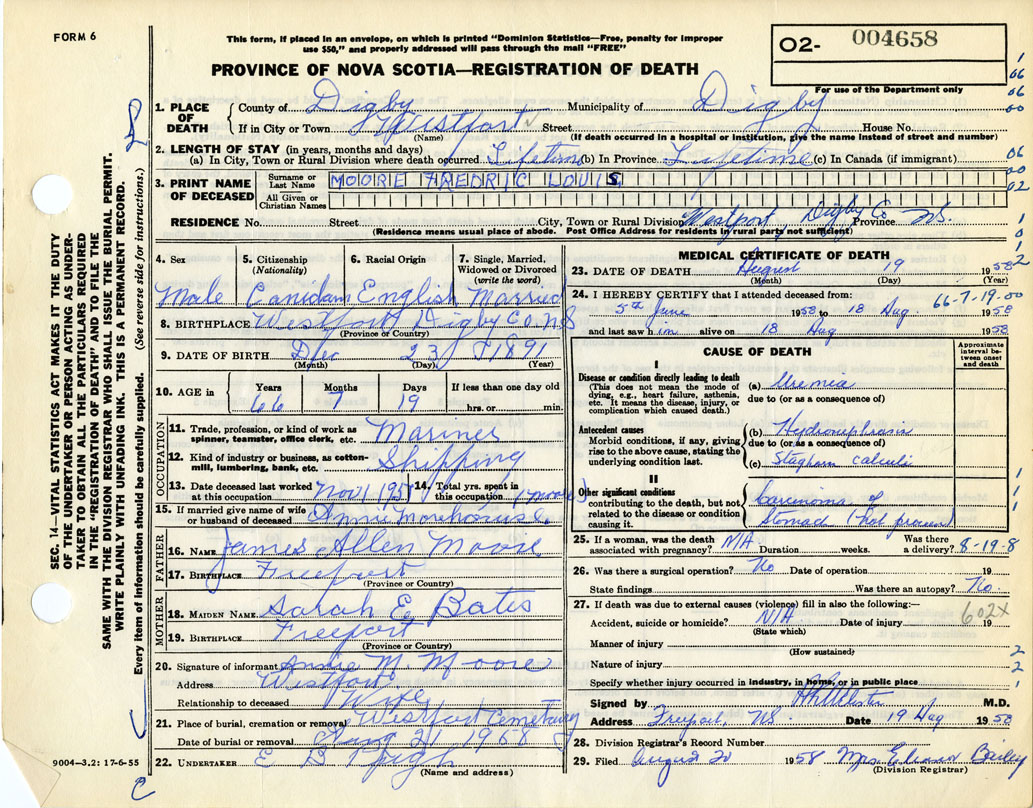 FORM 6
This form, if placed in an envelope, on which is printed "Dominion Statistics—Free, penalty for improper
use $50," and properly addressed will pass through the mail "FREE"
O2- 004658
For use of the Department only
PROVINCE OF NOVA SCOTIA—REGISTRATION OF DEATH
1. PLACE OF DEATH County of Digby Municipality of Digby
If in City or Town Westport Street House No.
(Name) (If death occurred in a hospital or institution, give the name instead of street and number)
2. LENGTH OF STAY (in years, months and days)
(a) In City, Town or Rural Division where death occurred Lifetime (b) In Province Lifetime (c) In Canada (if immigrant)
3. PRINT NAME OF DECEASED
Surname or Last Name MOORE FREDRIC LOUIS
All Given or Christian Names
RESIDENCE No. Street City, Town or Rural Division Westport Digby Co Province N.S.
(Residence means usual place of abode. Post Office Address for residents in rural parts not sufficient)
SEC. 14—VITAL STATISTICS ACT MAKES IT THE DUTY
OF THE UNDERTAKER OR PERSON ACTING AS UNDER-
TAKER TO OBTAIN ALL THE PARTICULARS REQUIRED
IN THE "REGISTRATION OF DEATH" AND TO FILE THE
SAME WITH THE DIVISION REGISTRAR WHO SHALL ISSUE THE BURIAL PERMIT.
WRITE PLAINLY WITH UNFADING INK. THIS IS A PERMANENT RECORD.
Every item of Information should be carefully supplied. (See reverse side for instructions.)
4. Sex 5. Citizenship (Nationality) 6. Racial Origin 7. Single, Married, Widowed or Divorced (write the word)
Male Canidan English Married
8. BIRTHPLACE Westport Digby Co. N.S
(Province or Country)
9. DATE OF BIRTH Dec 23 1891
(Month) (Day) (Year)
10. AGE in Years Months Days If less than one day old
66 7 19 hrs. or min.
OCCUPATION
11. Trade, profession, or kind of work as spinner, teamster, office clerk, etc. Mariner
12. Kind of industry or business, as cotton-mill, lumbering, bank, etc. Shipping
13. Date deceased last worked at this occupation Nov 1 195
14. Total yrs. spent in this occupation
15. If married give name of wife or husband of deceased Annie Morehouse
FATHER
16. NAME James Allen Moore
17. BIRTHPLACE Freeport
(Province or Country)
MOTHER
18. MAIDEN NAME Sarah E Bates
19. BIRTHPLACE Freeport
(Province or Country)
20. Signature of informant Annie M. Moore
Address Westport
Relationship to deceased Wife
21. Place of burial, cremation or removal Westport Cemetary
Date of burial or removal Aug 21 1958
22. UNDERTAKER E B Pugh
(Name and address)
9004—3.2: 17-6-55
MEDICAL CERTIFICATE OF DEATH
23. DATE OF DEATH August 19 1958
(Month) (Day) (Year)
24. I HEREBY CERTIFY that I attended deceased from: 66-7-19-00
5th June 1958 to 18 Aug. 1958
and last saw him alive on 18 Aug 1958
CAUSE OF DEATH
Approximate interval between onset and death
I
Disease or condition directly leading to death
(This does not mean the mode of dying, e.g., heart failure, asthenia, etc. It means the disease, injury, or complication which caused death.)
(a) Uremia
due to (or as a consequence of)
Antecedent causes
Morbid conditions, if any, giving rise to the above cause, stating the underlying condition last.
(b) Hydronephrosis
due to (or as a consequence of)
(c) Staghorn calculi
II
Other significant conditions
contributing to the death, but not related to the disease or condition causing it.
Carcinoma of
Stomach (not proven)
25. If a woman, was the death associated with pregnancy? N/A Duration weeks. Was there a delivery? 8-19-8
26. Was there a surgical operation? No Date of operation 19
State findings Was there an autopsy? No
27. If death was due to external causes (violence) fill in also the following:—
Accident, suicide or homicide? N/A Date of injury 19
(State which) 602X
Manner of injury
(How sustained)
Nature of injury
Specify whether injury occurred in industry, in home, or in public place
Signed by M.D.
Address Freeport, N.S. Date 19 Aug 1958
28. Division Registrar's Record Number
29. Filed August 20 1958 Mrs. Eleanor Bailey
(Division Registrar)